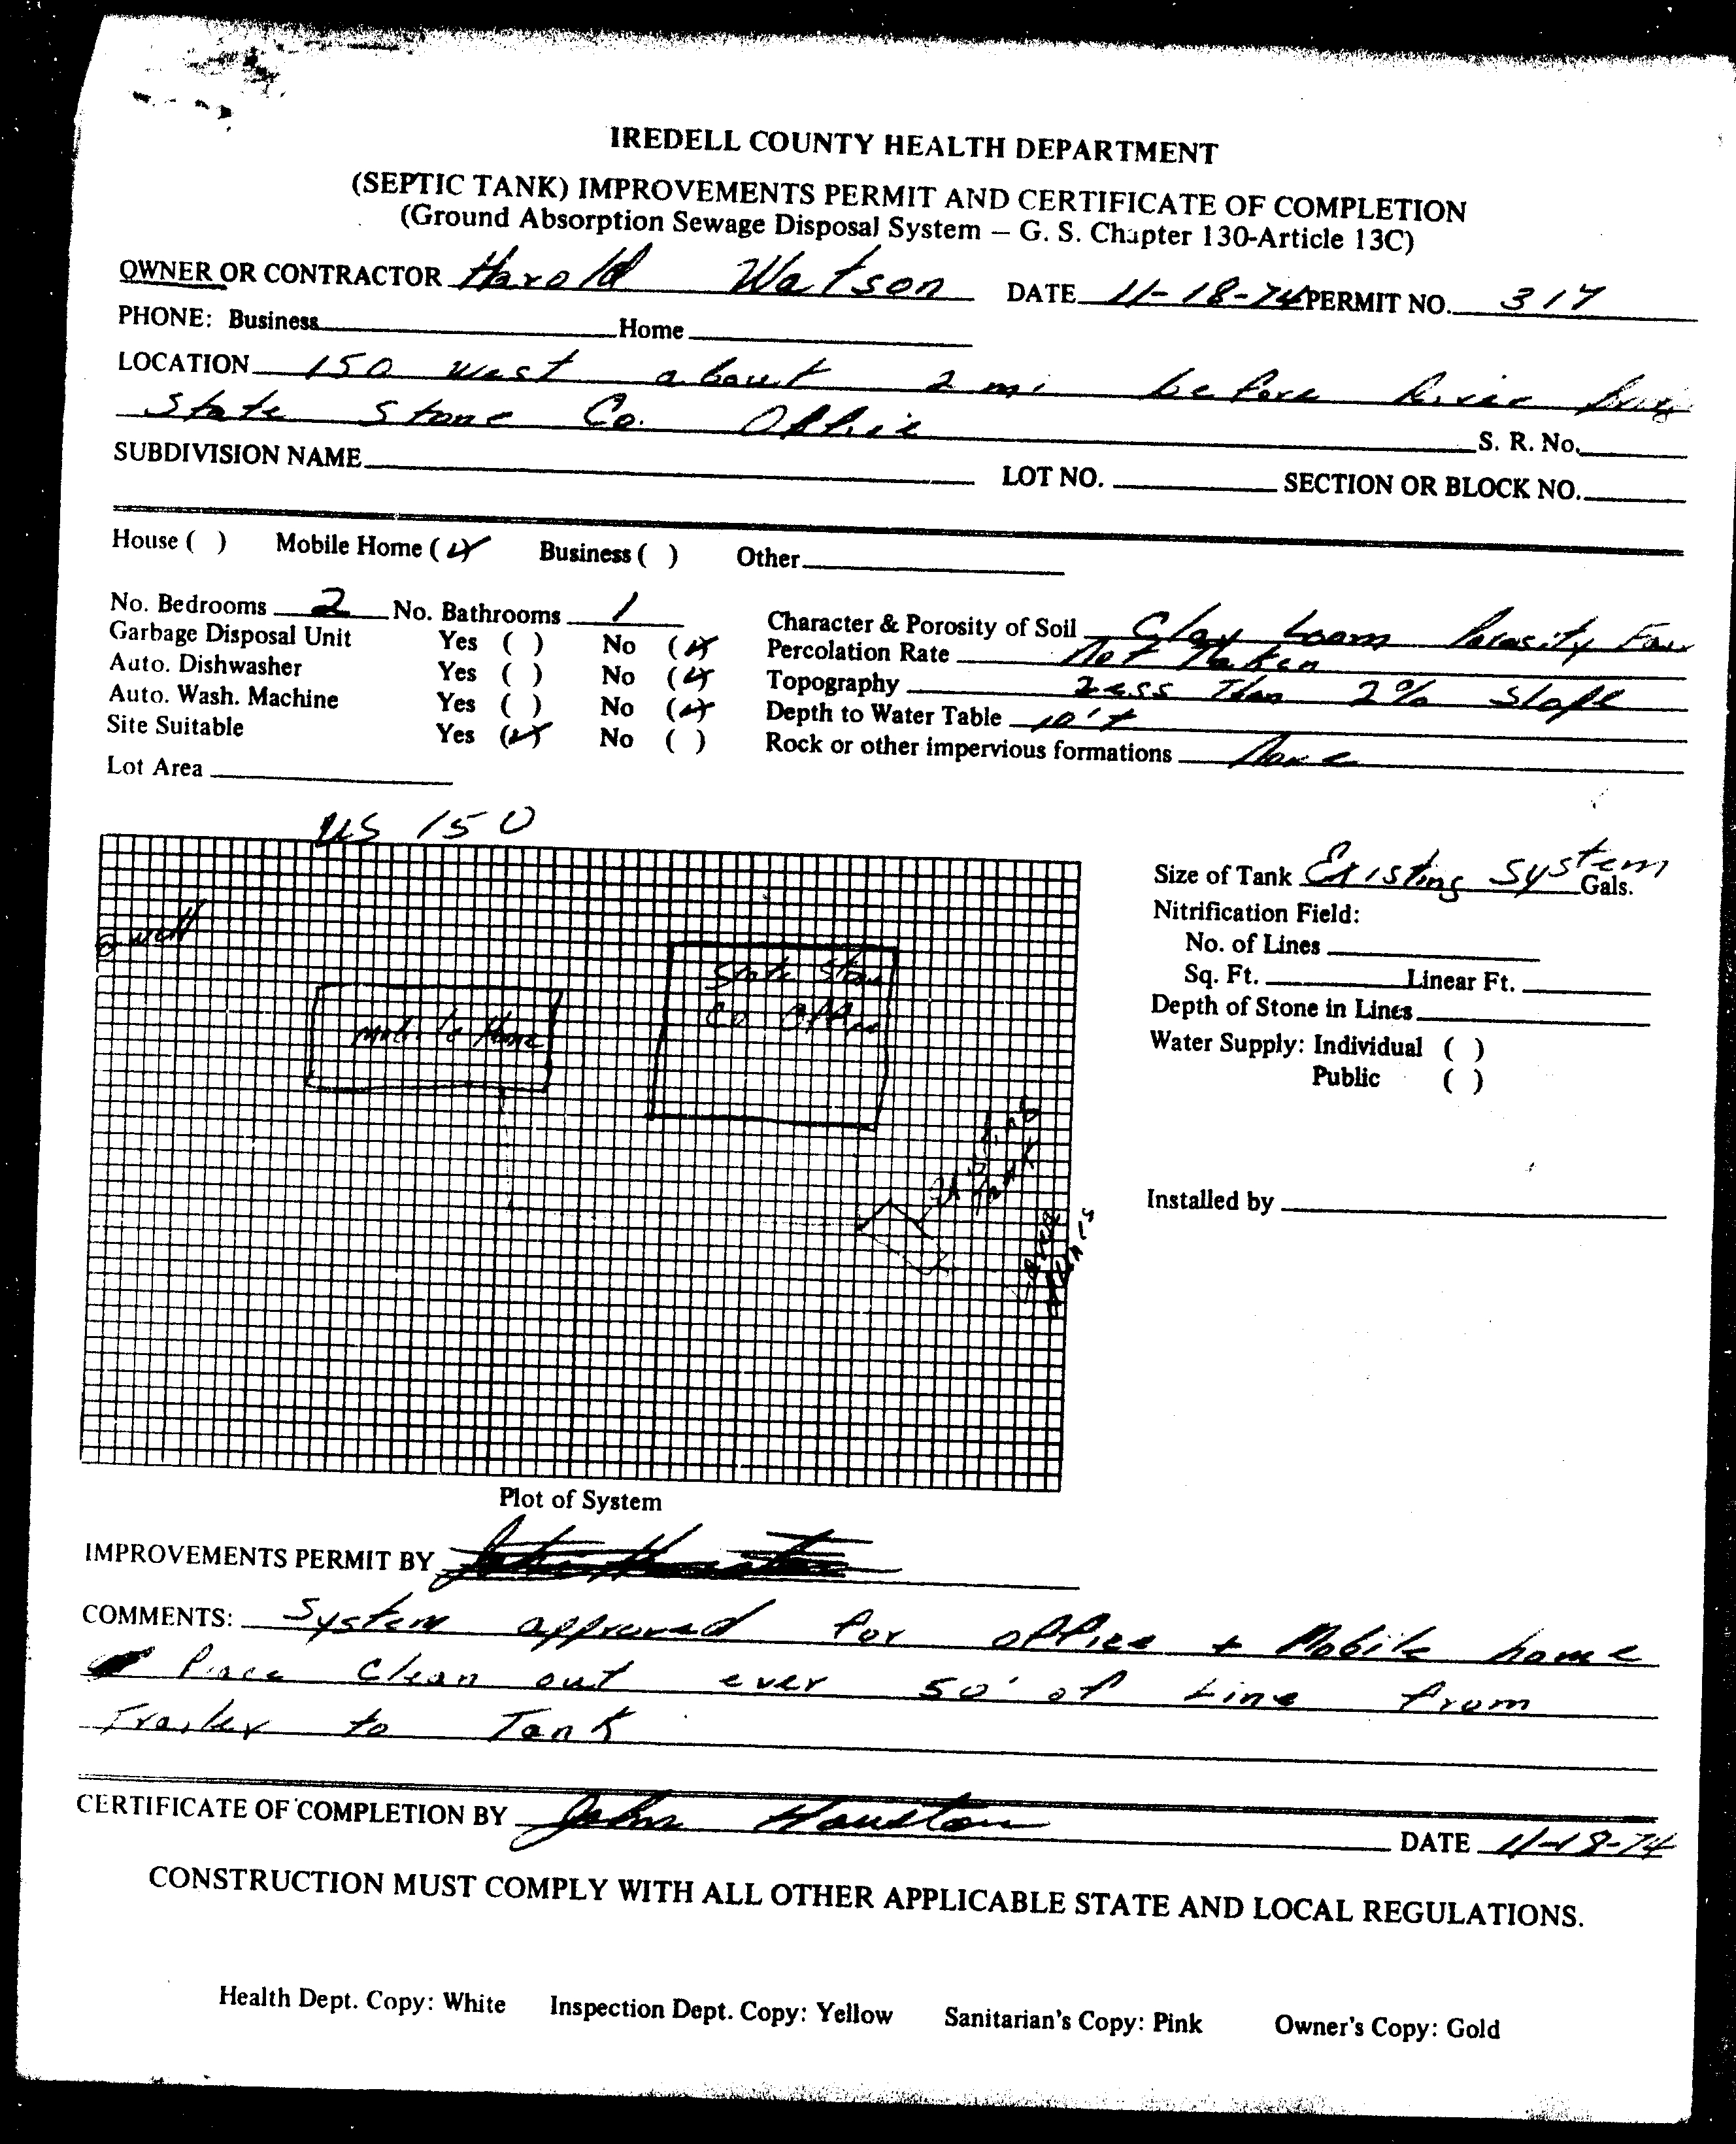 IREDELL COUNTY HEALTH DEPARTMENT
(SEPTIC TANK) IMPROVEMENTS PERMIT AND CERTIFICATE OF COMPLETION
(Ground Absorption Sewage Disposal System – G. S. Chapter 130-Article 13C)
OWNER OR CONTRACTOR Harold Watson DATE 11-18-74 PERMIT NO. 317
PHONE: Business Home
LOCATION 150 west about 2 mi before River
State Stone Co. Office S. R. No.
SUBDIVISION NAME LOT NO. SECTION OR BLOCK NO.
House ( ) Mobile Home (✓) Business ( ) Other
No. Bedrooms 2 No. Bathrooms 1
Garbage Disposal Unit Yes ( ) No (✓)
Auto. Dishwasher Yes ( ) No (✓)
Auto. Wash. Machine Yes ( ) No (✓)
Site Suitable Yes (✓) No ( )
Lot Area
Character & Porosity of Soil Clay Loam Porosity Fair
Percolation Rate Not Taken
Topography Less Than 2% Slope
Depth to Water Table 10'+
Rock or other impervious formations None
US 150
well
State Stone
Co Office
mobile Home
Tank
Plot of System
Size of Tank Existing System Gals.
Nitrification Field:
No. of Lines
Sq. Ft. Linear Ft.
Depth of Stone in Lines
Water Supply: Individual ( )
Public ( )
Installed by
IMPROVEMENTS PERMIT BY
COMMENTS: System approved for office + Mobile home
Place Clean out ever 50' of Line from
Trailer to Tank
CERTIFICATE OF COMPLETION BY John Houston DATE 11-18-74
CONSTRUCTION MUST COMPLY WITH ALL OTHER APPLICABLE STATE AND LOCAL REGULATIONS.
Health Dept. Copy: White Inspection Dept. Copy: Yellow Sanitarian's Copy: Pink Owner's Copy: Gold